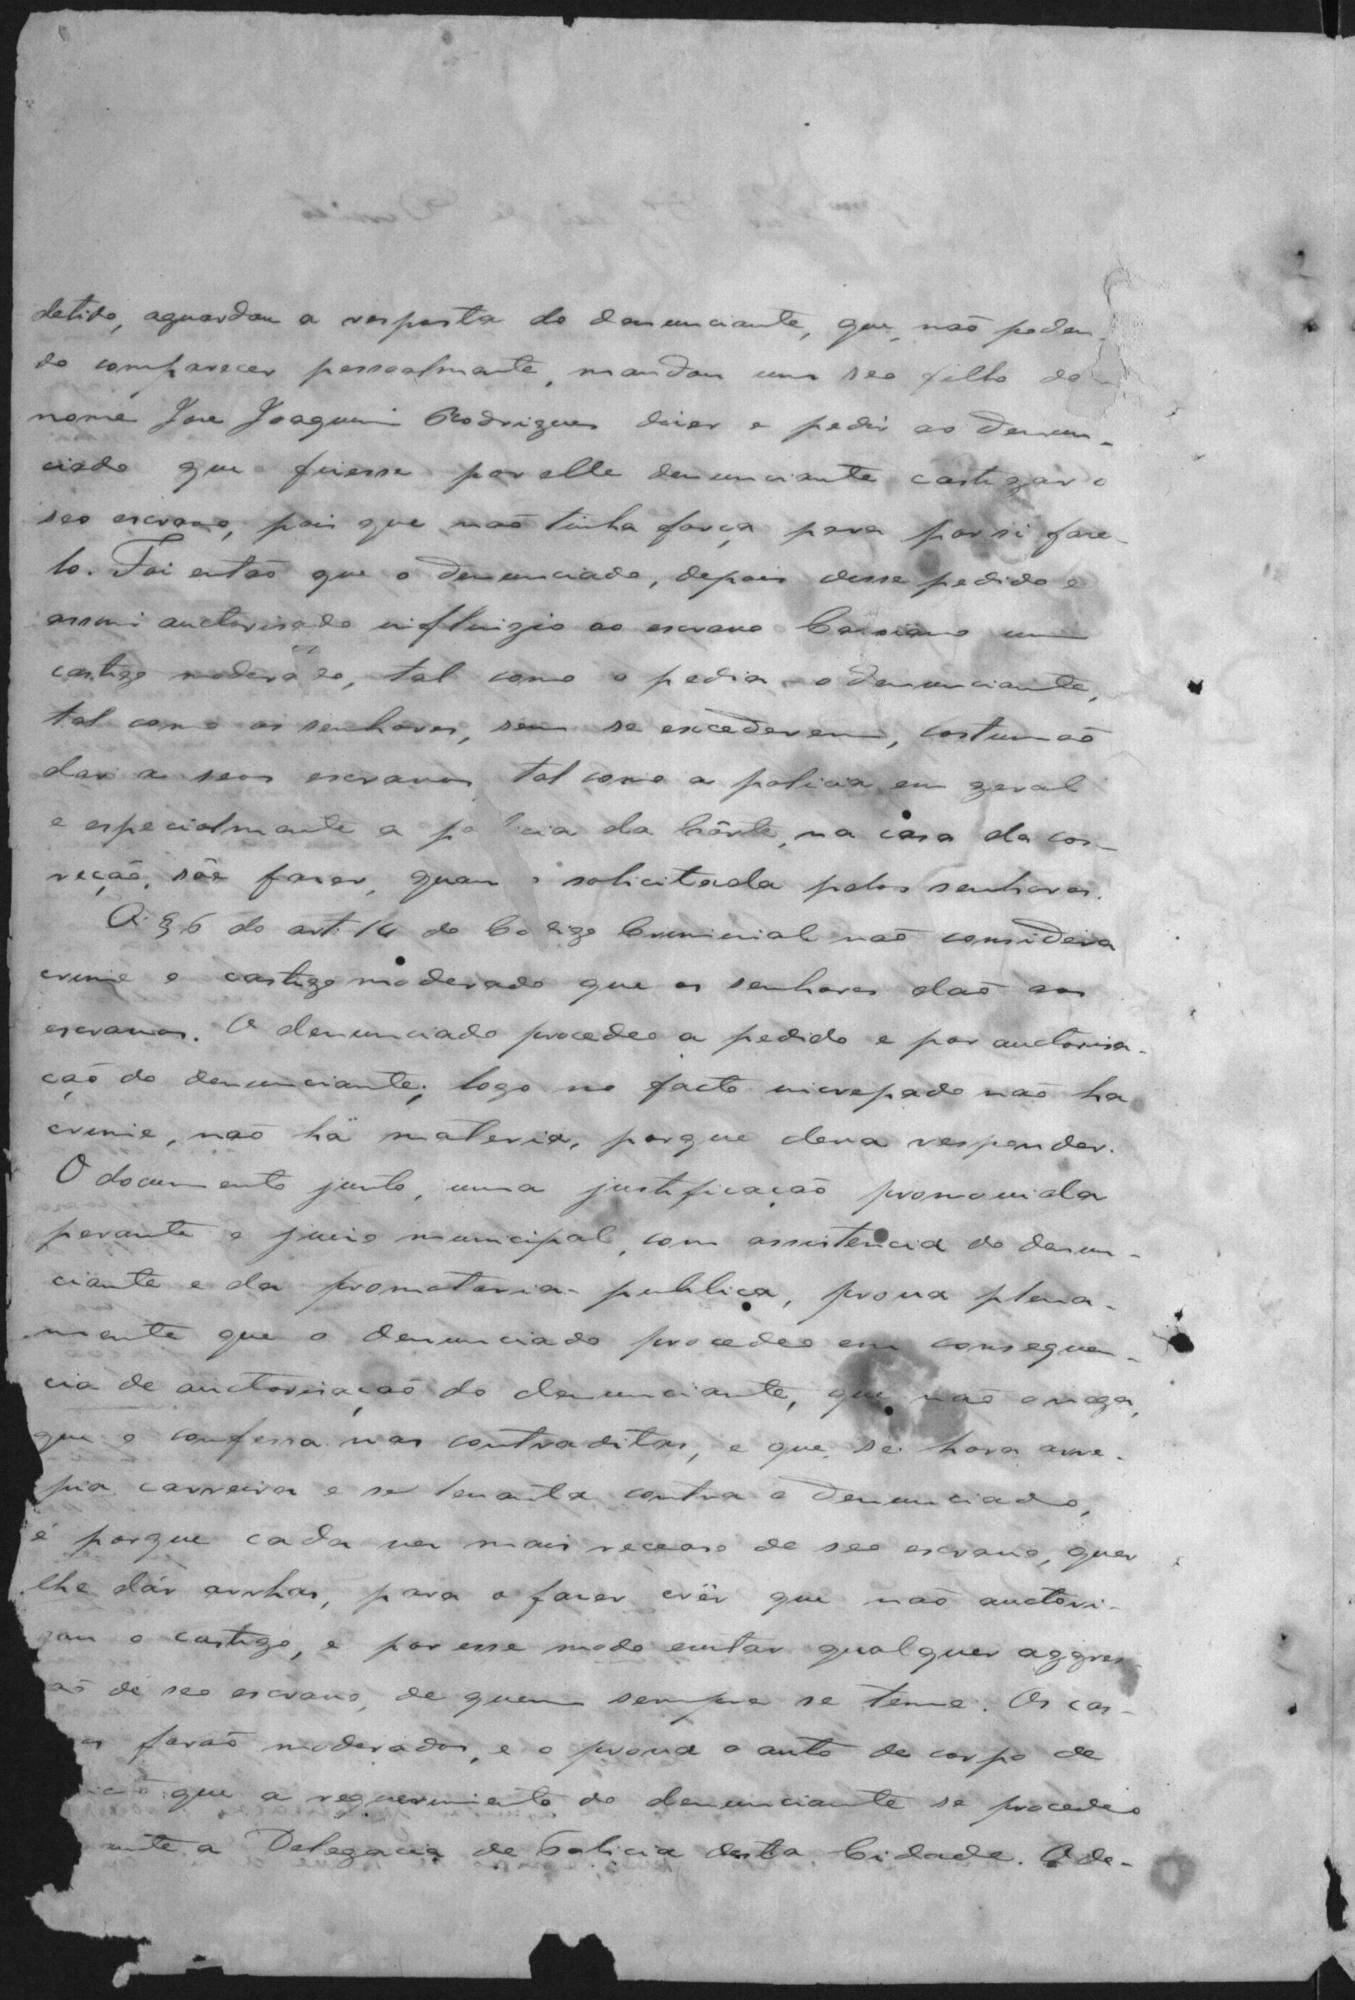 detido, aguardou a resposta do denunciante, que, não poden-
do comparecer pessoalmente, mandou um seo filho de
nome José Joaquim Rodrigues dizer e pedir ao denun-
ciado que fizesse por elle denunciante castigar o
seo escravo, pois que não tinha força para por si faze-
lo. Foi então que o denunciado, depois desse pedido e
assim auctorisado inflingio ao escravo Cassiano um
castigo moderado, tal como o pedia o denunciante,
tal como os senhores, sem se excederem, costumão
dar a seos escravos tal como a policia em geral
e especialmente a policia da Côrte, na casa da cor-
reção, sóe fazer, quando solicitada pelos senhores.
O § 6 do art. 14 do Codigo Criminal não considera
crime o castigo moderado que os senhores dão aos
escravos. O denunciado procedeo a pedido e por auctorisa-
ção do denunciante; logo no facto increpado não ha
crime, não há materia, porque deva responder.
O documento junto, uma justificação promovida
perante o juizo municipal, com assistencia do denun-
ciante e da promotoria publica, prova plena-
mente que o denunciado procedeo em consequen-
cia de auctorisação do denunciante, que não o nega,
que o confessa nas contraditas, e que, se hora arre-
pia carreira e se levanta contra o denunciado,
é porque cada vez mais receoso de seo escravo, quer
lhe dár arrhas, para o fazer crêr que não auctori-
zou o castigo, e por esse modo evitar qualquer aggres-
ão de seo escravo, de quem sempre se teme. Os cas-
os forão moderados, e o prova o auto de corpo de
que a requerimento do denunciante se procedeo
ante a Delegacia de Policia desta Cidade. O de-